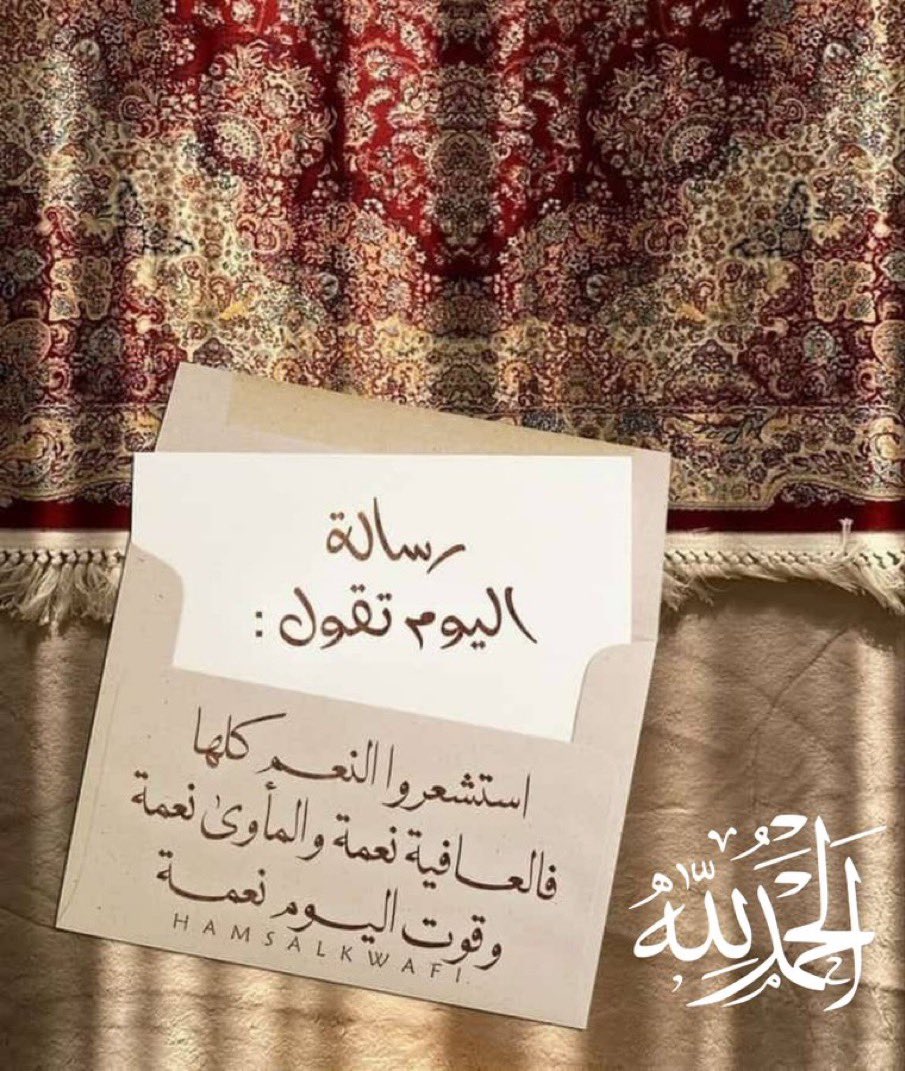 رسالة
اليوم تقول :
استشعروا النعم كلها
فالعافية نعمة والمأوىٰ نعمة
وقوت اليوم نعمة
HAMSALKWAFI
الحَمْدُ لِلّٰهِ